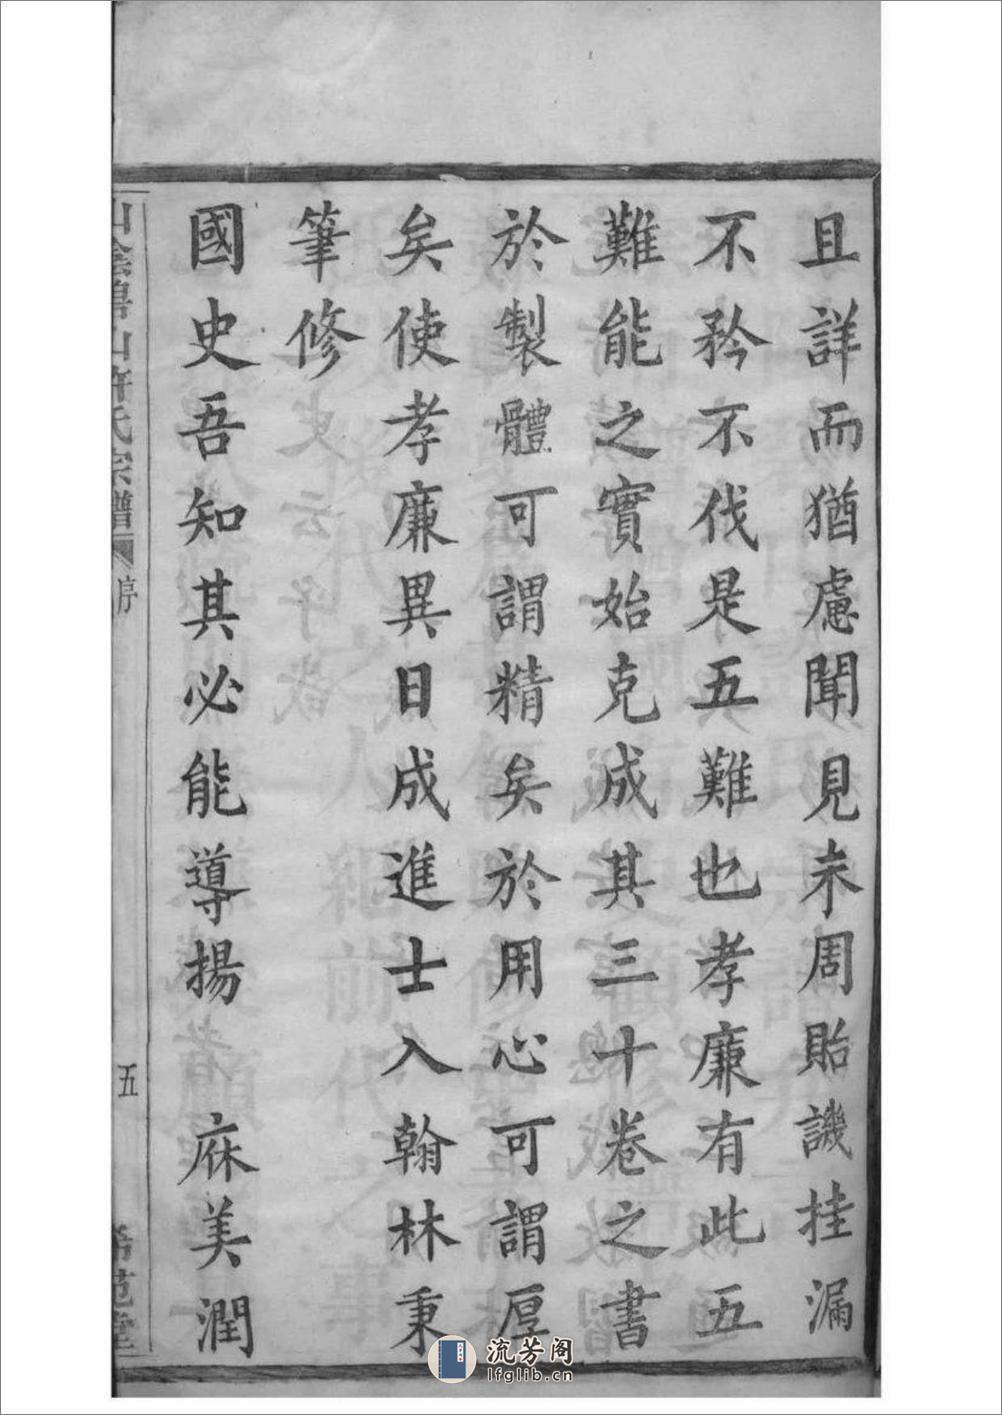 且詳而猶慮聞見未周貽譏挂漏
不矜不伐是五難也孝廉有此五
難能之實始克成其三十卷之書
於製體可謂精矣於用心可謂厚
矣使孝廉異日成進士入翰林秉
筆修
國史吾知其必能導揚 庥美潤
山陰碧山許氏宗譜 序 五
流芳阁
lfglib.cn